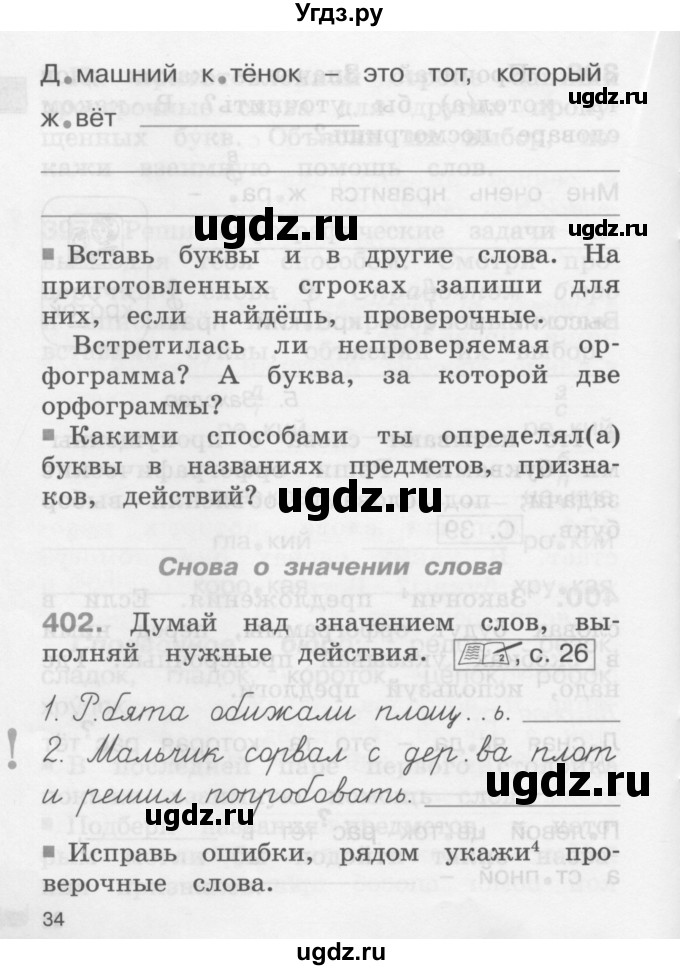 Угdz.ру
Д.машний к.тёнок – это тот, который
ж.вёт
ugdz.ru
Вставь буквы и в другие слова. На
приготовленных строках запиши для
них, если найдёшь, проверочные.
Встретилась ли непроверяемая ор-
фограмма? А буква, за которой две
орфограммы?
Какими способами ты определял(а)
буквы в названиях предметов, призна-
ков, действий?
ugdz.ru
Снова о значении слова
402. Думай над значением слов, вы-
полняй нужные действия. 2, с. 26
1. Р.бята обижали площ..ь.
! 2. Мальчик сорвал с дер.ва плот
и решил попробовать.
ugdz.ru
ugdz.ru
Исправь ошибки, рядом укажи4 про-
верочные слова.
34
ugdz.ru